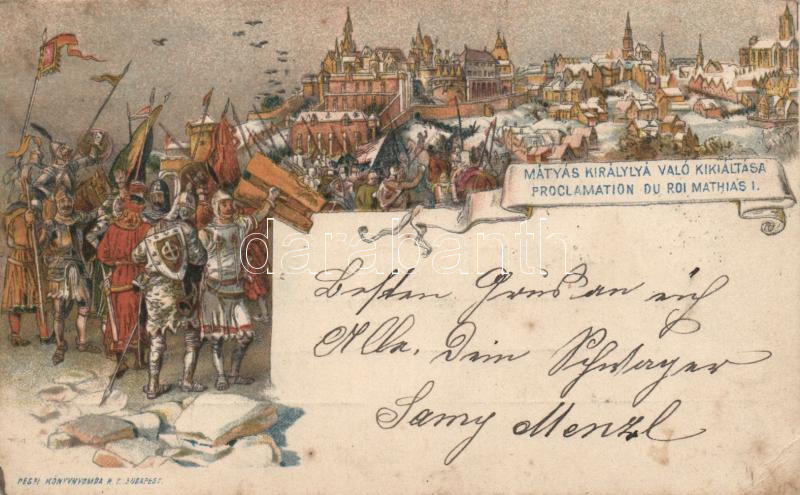 MÁTYÁS KIRÁLYLYÁ VALÓ KIKIÁLTÁSA
PROCLAMATION DU ROI MATHIAS I.
darabanth
Besten Gruß an euch
Alle. Dein Schwager
Samy Menzl
PESTI KÖNYVNYOMDA R. T. BUDAPEST.